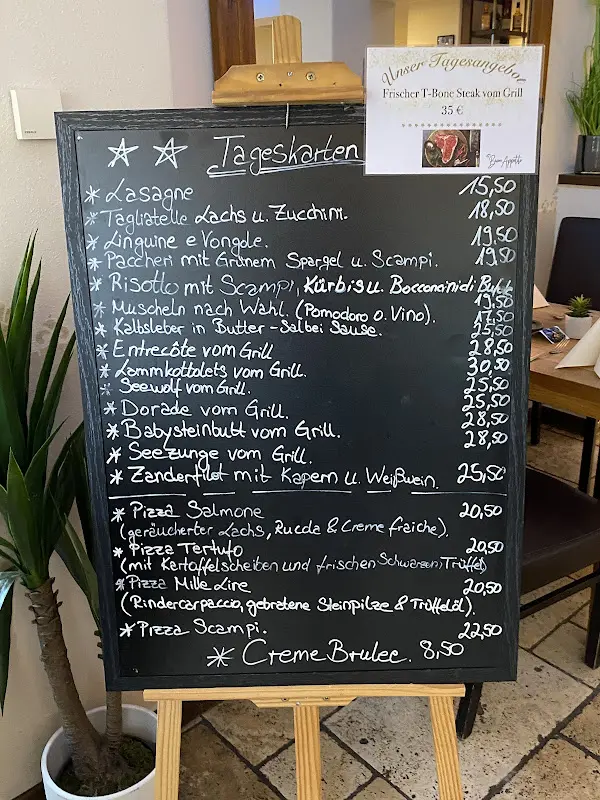 Unser Tagesangebot
Frischer T-Bone Steak vom Grill
35 €
Bon Appetito
Tageskarten
* Lasagne 15,50
* Tagliatelle Lachs u. Zucchini. 18,50
* Linguine e Vongole. 19,50
* Paccheri mit Grünem Spargel u. Scampi. 19,50
* Risotto mit Scampi, Kürbis u. Bocconcini di Buff
19,50
* Muscheln nach Wahl. (Pomodoro o. Vino). 17,50
* Kalbsleber in Butter-Salbei Sause. 25,50
* Entrecôte vom Grill 28,50
* Lammkottolets vom Grill. 30,50
* Seewolf vom Grill. 25,50
* Dorade vom Grill. 25,50
* Babysteinbutt vom Grill. 28,50
* Seezunge vom Grill. 28,50
* Zanderfilet mit Kapern u. Weißwein. 25,50
* Pizza Salmone 20,50
(geräucherter Lachs, Rucola & Creme fraiche).
* Pizza Tartufo 20,50
(mit Kartoffelscheiben und frischen Schwarzen Trüffel)
* Pizza Mille Lire 20,50
(Rindercarpaccio, gebratene Steinpilze & Trüffelöl).
* Pizza Scampi. 22,50
* Creme Brulee. 8,50